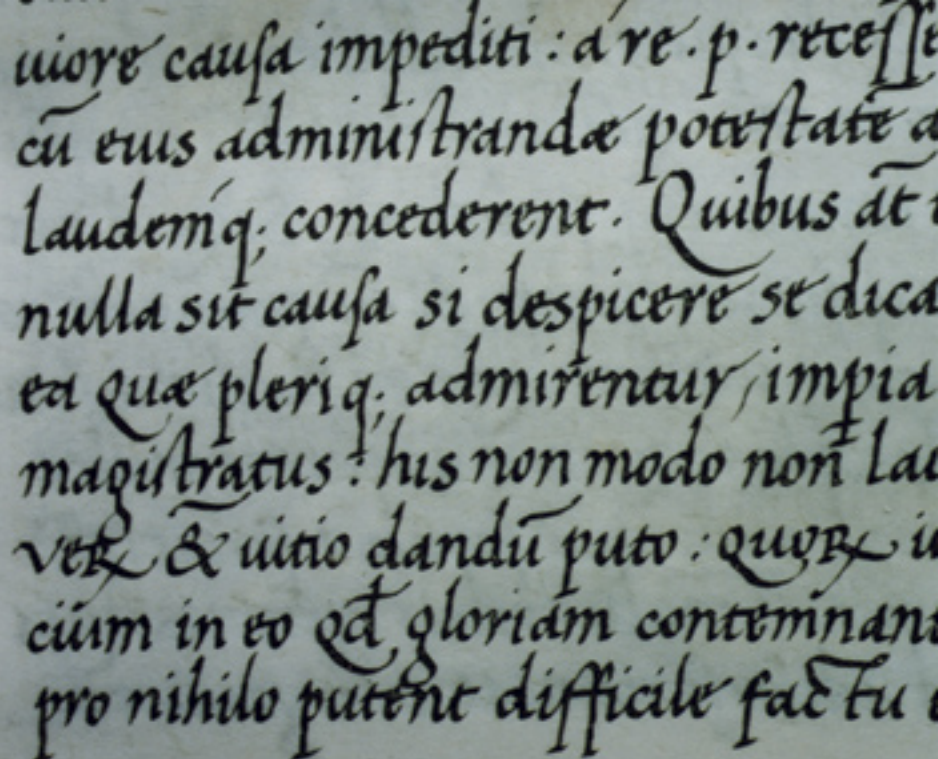 uiore causa impediti : a re . p . recesse
cū eius administrandæ potestatē a
laudemq; concederent . Quibus āt t
nulla sit causa si despicere se dica
ea quæ pleriq; admirentur, impia
magistratus : his non modo non lau
veꝝ & uitio dandū puto : quoꝝ iu
cium in eo qđ gloriam contemnant
pro nihilo putent difficile factu e